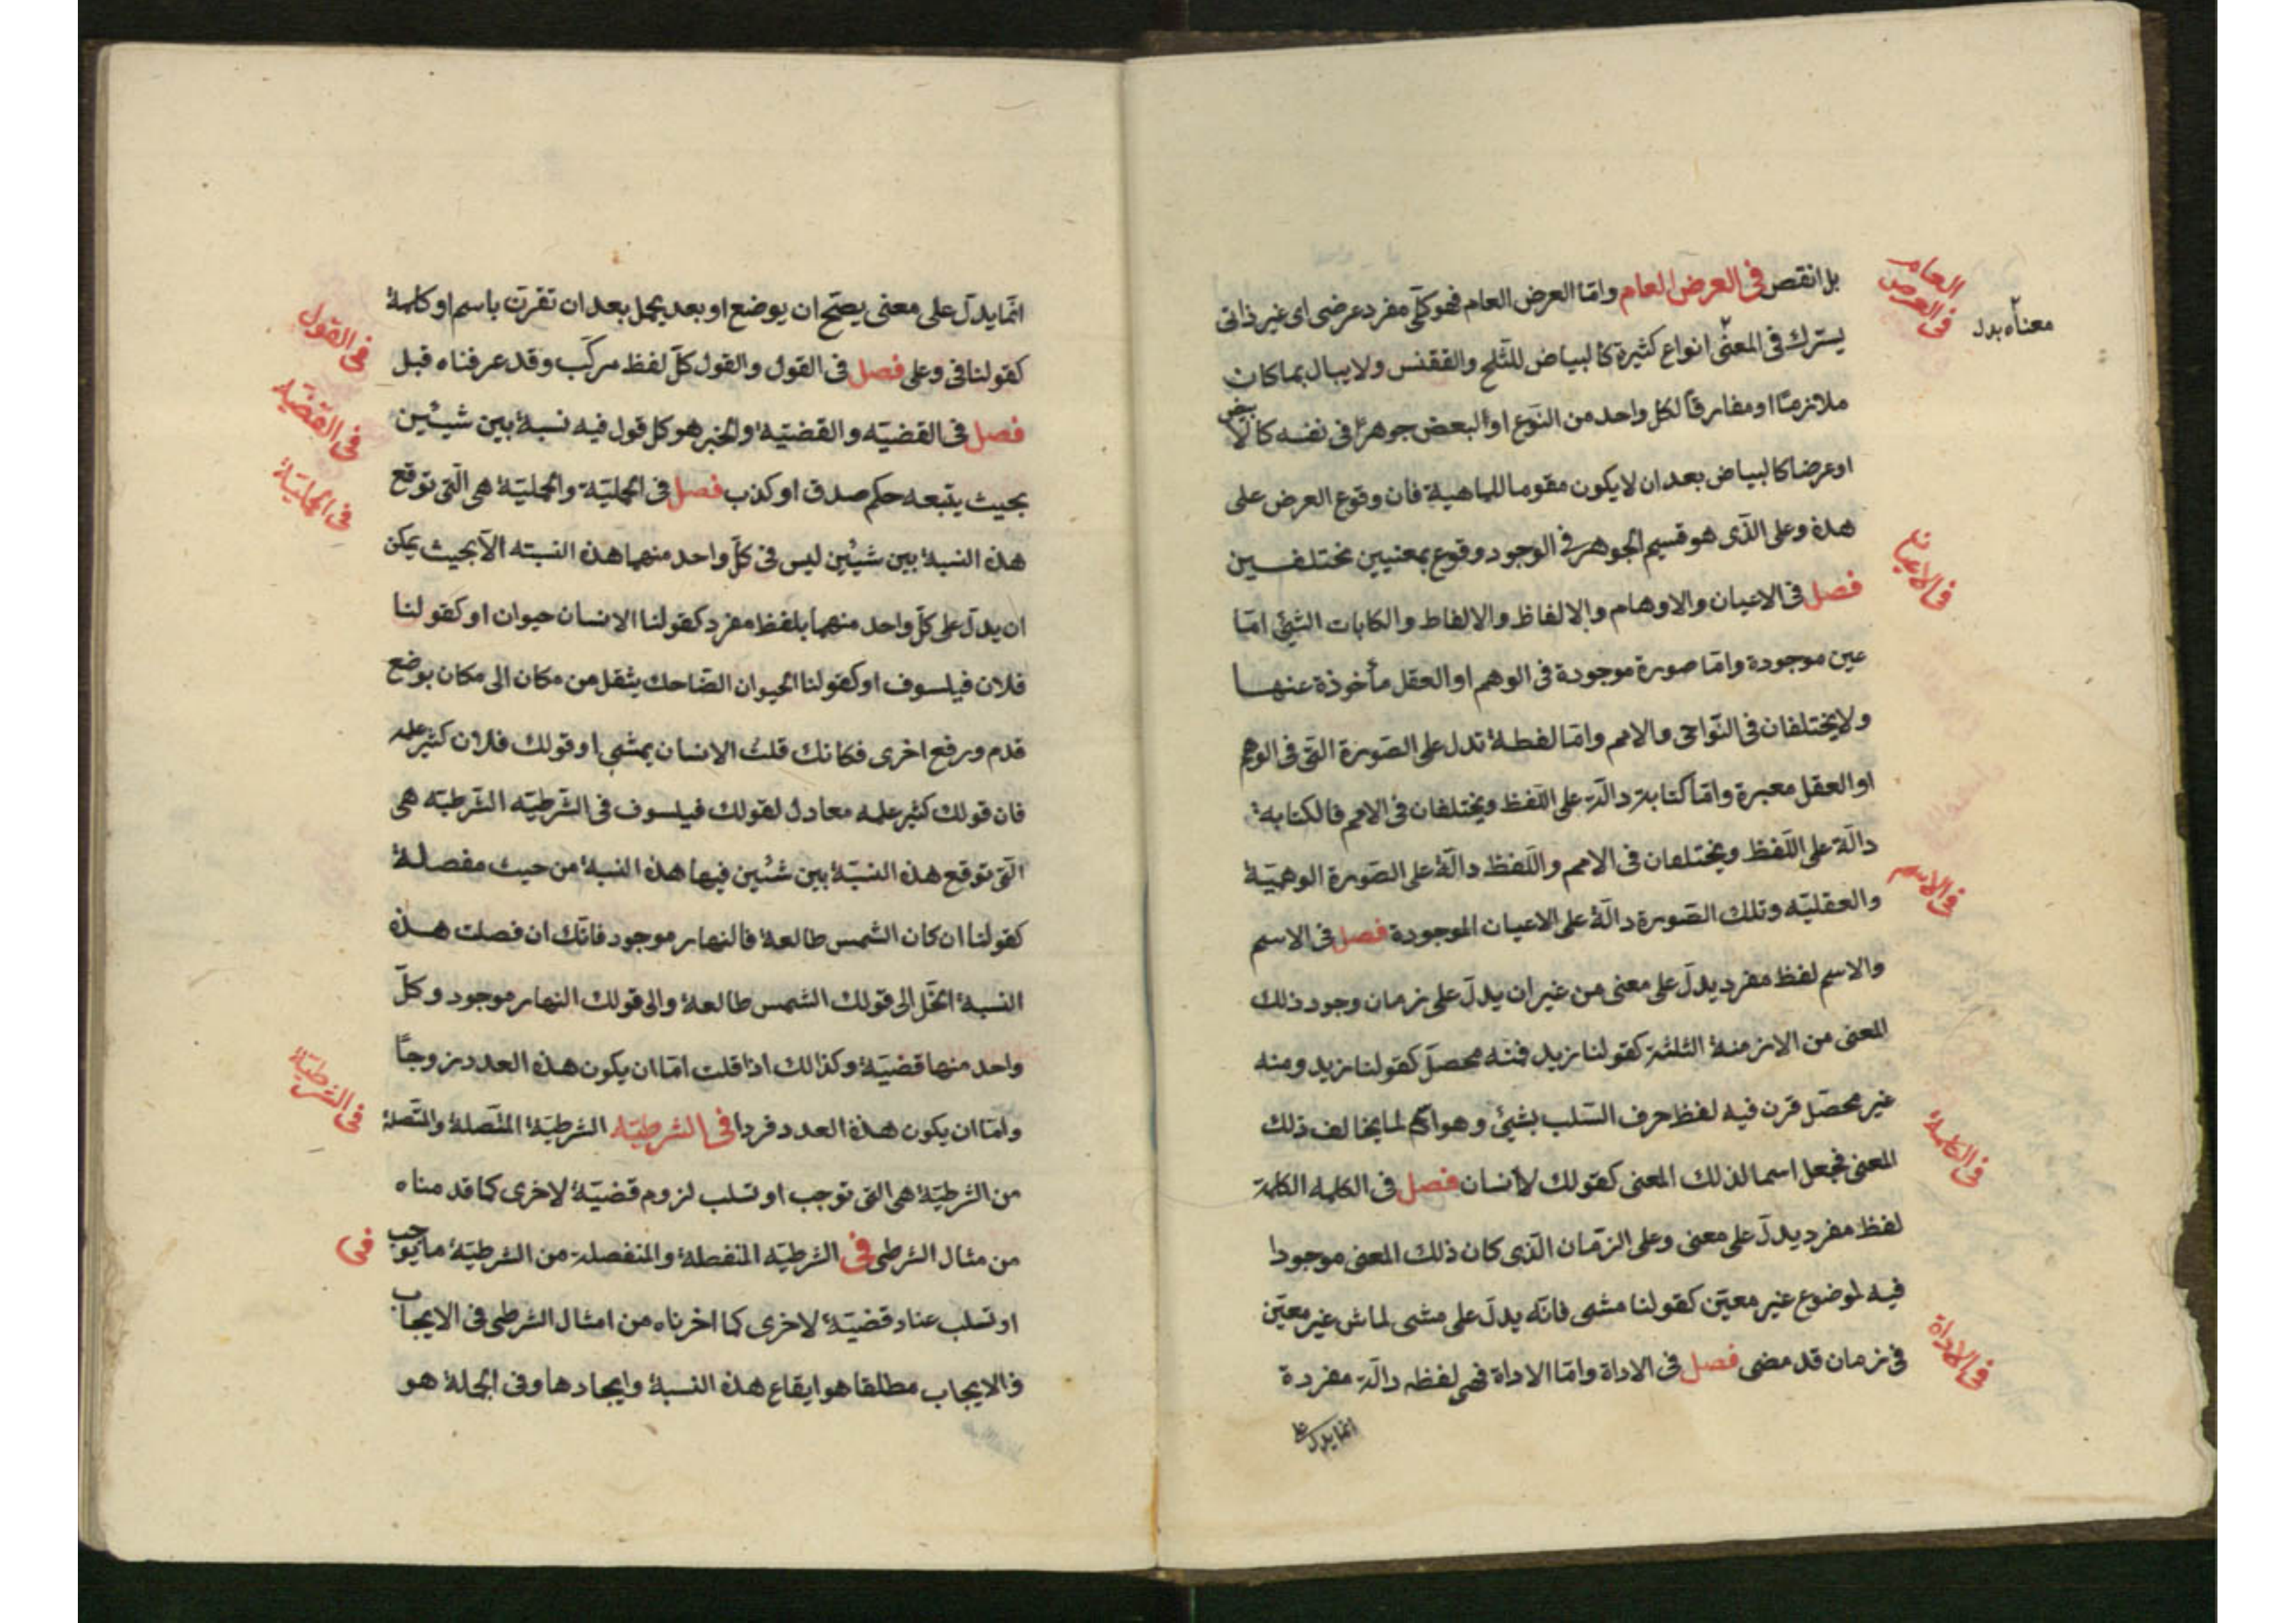 بل انقص فى العرض العام وامّا العرض العام فهو كلّى مفرد عرضى اى غير ذاتى
يشترك فى المعنى انواع كثيرة كالبياض للثّلج والققنس ولا يبال بما كان
ملازمًا او مفارقًا لكل واحد من النّوع او البعض جوهرًا فى نفسه كالابيض
او عرضا كالبياض بعد ان لا يكون مقوما للماهية فان وقوع العرض على
هذه وعلى الّذى هو قسيم الجوهر فى الوجود وقوع بمعنيين مختلفين
فصل فى الاعيان والاوهام والالفاظ والالفاظ والكتابات الشئ امّا
عين موجودة وامّا صورة موجودة فى الوهم او العقل مأخوذة عنها
ولا يختلفان فى النّواحى والامم وامّا لفظة تدل على الصّورة الّتى فى الوهم
او العقل معبرة وامّا كتابة دالّة على اللّفظ ويختلفان فى الامم فالكتابة
دالّة على اللّفظ ويختلفان فى الامم واللّفظ دالّة على الصّورة الوهميّة
والعقليّه وتلك الصّورة دالّة على الاعيان الموجودة فصل فى الاسم
والاسم لفظ مفرد يدلّ على معنى من غير ان يدلّ على زمان وجود ذلك
المعنى من الازمنة الثلثة كقولنا زيد فمنه محصلّ كقولنا زيد ومنه
غير محصّل قرن فيه لفظ حرف السّلب بشئ وهو اسم لما يخالف ذلك
المعنى فجعل اسما لذلك المعنى كقولك لاانسان فصل فى الكلمه الكلمة
لفظ مفرد يدلّ على معنى وعلى الزمّان الّذى كان ذلك المعنى موجودا
فيه لموضوع غير معيّن كقولنا مشى فانّه يدلّ على مشى لماش غير معيّن
فى زمان قد مضى فصل فى الاداة وامّا الاداة فهى لفظه دالّة مفردة
انّما يدل على
فى العرض العام
معناه بدل
فى الاعيان
فى الاسم
فى الكلمة
فى الاداة
انّما يدلّ على معنى يصحّ ان يوضع او بعد يحمل بعد ان تقرن باسم او كلمة
كقولنا فى وعلى فصل فى القول والقول كلّ لفظ مركّب وقد عرفناه قبل
فصل فى القضيّه والقضيّة والخبر هو كل قول فيه نسبة بين شيئين
بحيث يتبعه حكم صدق او كذب فصل فى الحمليّة والحمليّة هى الّتى توقع
هذه النسبة بين شيئين ليس فى كلّ واحد منهما هذه النسبته الّا بحيث يمكن
ان يدلّ على كلّ واحد منهما بلفظ مفرد كقولنا الانسان حيوان او كقولنا
فلان فيلسوف او كقولنا الحيوان الضّاحك ينتقل من مكان الى مكان بوضع
قدم ورفع اخرى فكانك قلت الانسان يمشى او قولك فلان كثير علمه
فان قولك كثير علمه معادل لقولك فيلسوف فى الشّرطيّه الشّرطيّه هى
الّتى توقع هذه النسبّة بين شئين فيها هذه النسبة من حيث مفصلة
كقولنا ان كان الشّمس طالعة فالنهار موجود فانّك ان فصلت هذه
النسبة انحلّ الى قولك الشّمس طالعة والى قولك النهار موجود وكلّ
واحد منها قضيّة وكذالك اذا قلت امّا ان يكون هذه العدد زوجًا
وامّا ان يكون هذه العدد فردا فى الشرطيّه الشرطيّة المتّصلة والمتّصلة
من الشّرطيّة هى التى توجب او تسلب لزوم قضيّة لاخرى كما قدمناه
من مثال الشرطى فى الشّرطيّه المنفصلة والمنفصلة من الشرطيّة ما يوجب
او تسلب عناد قضيّة لاخرى كما اخرناه من امثال الشرطى فى الايجاب
فالايجاب مطلقا هو ايقاع هذه النسبة وايجادها وفى الجملة هو
فى القول
فى القضيّه
فى الحمليّة
فى الشّرطيّة
فى